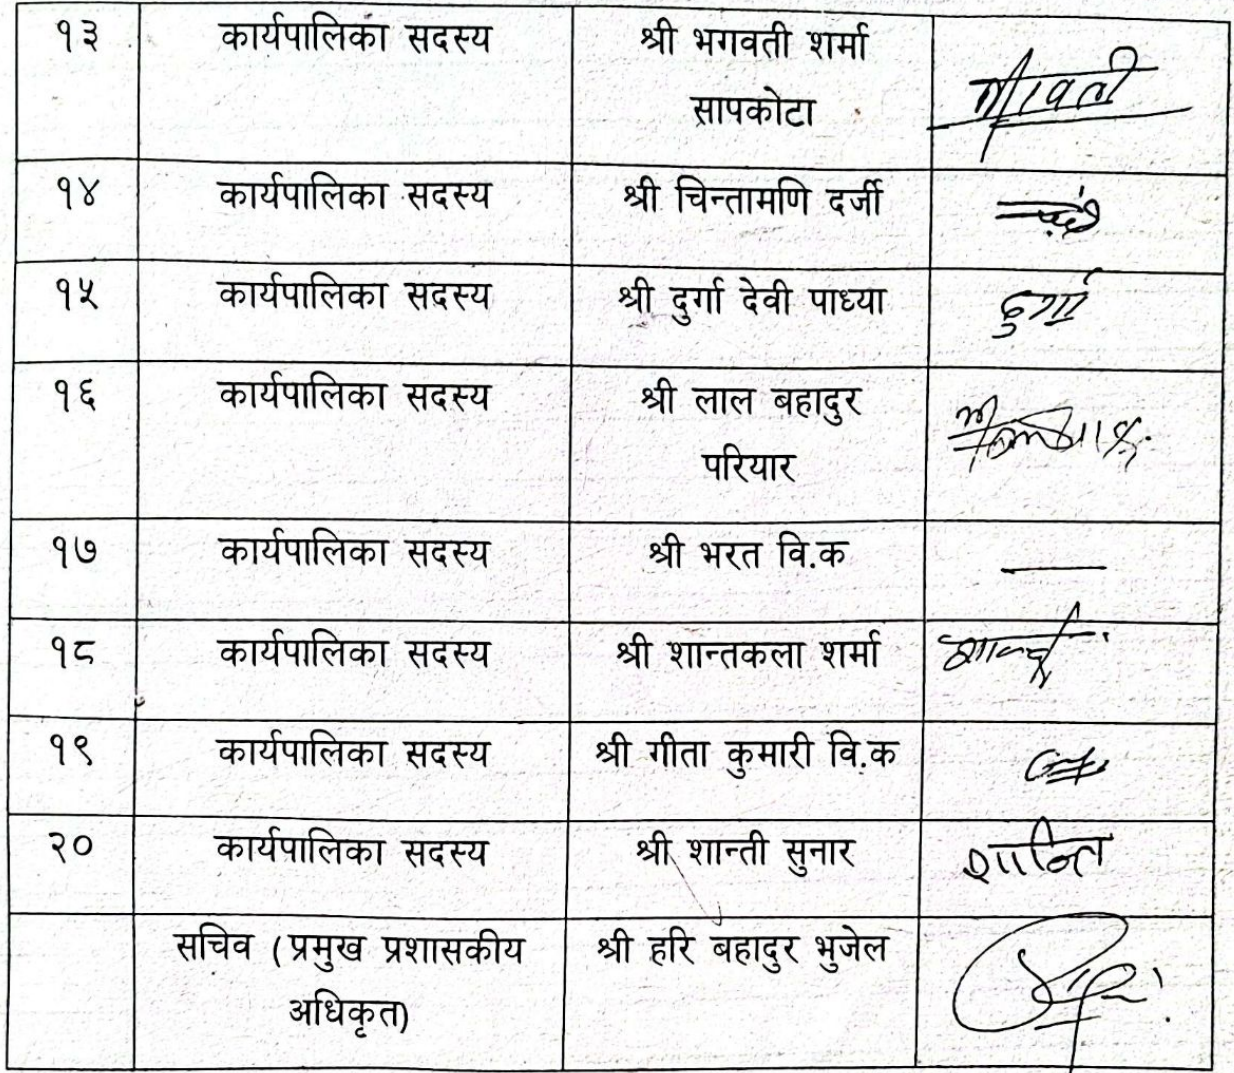 १३ कार्यपालिका सदस्य श्री भगवती शर्मा
सापकोटा
१४ कार्यपालिका सदस्य श्री चिन्तामणि दर्जी
१५ कार्यपालिका सदस्य श्री दुर्गा देवी पाध्या दुर्गा
१६ कार्यपालिका सदस्य श्री लाल बहादुर
परियार
१७ कार्यपालिका सदस्य श्री भरत वि.क
१८ कार्यपालिका सदस्य श्री शान्तकला शर्मा
१९ कार्यपालिका सदस्य श्री गीता कुमारी वि.क
२० कार्यपालिका सदस्य श्री शान्ती सुनार शान्ति
सचिव (प्रमुख प्रशासकीय श्री हरि बहादुर भुजेल
अधिकृत)